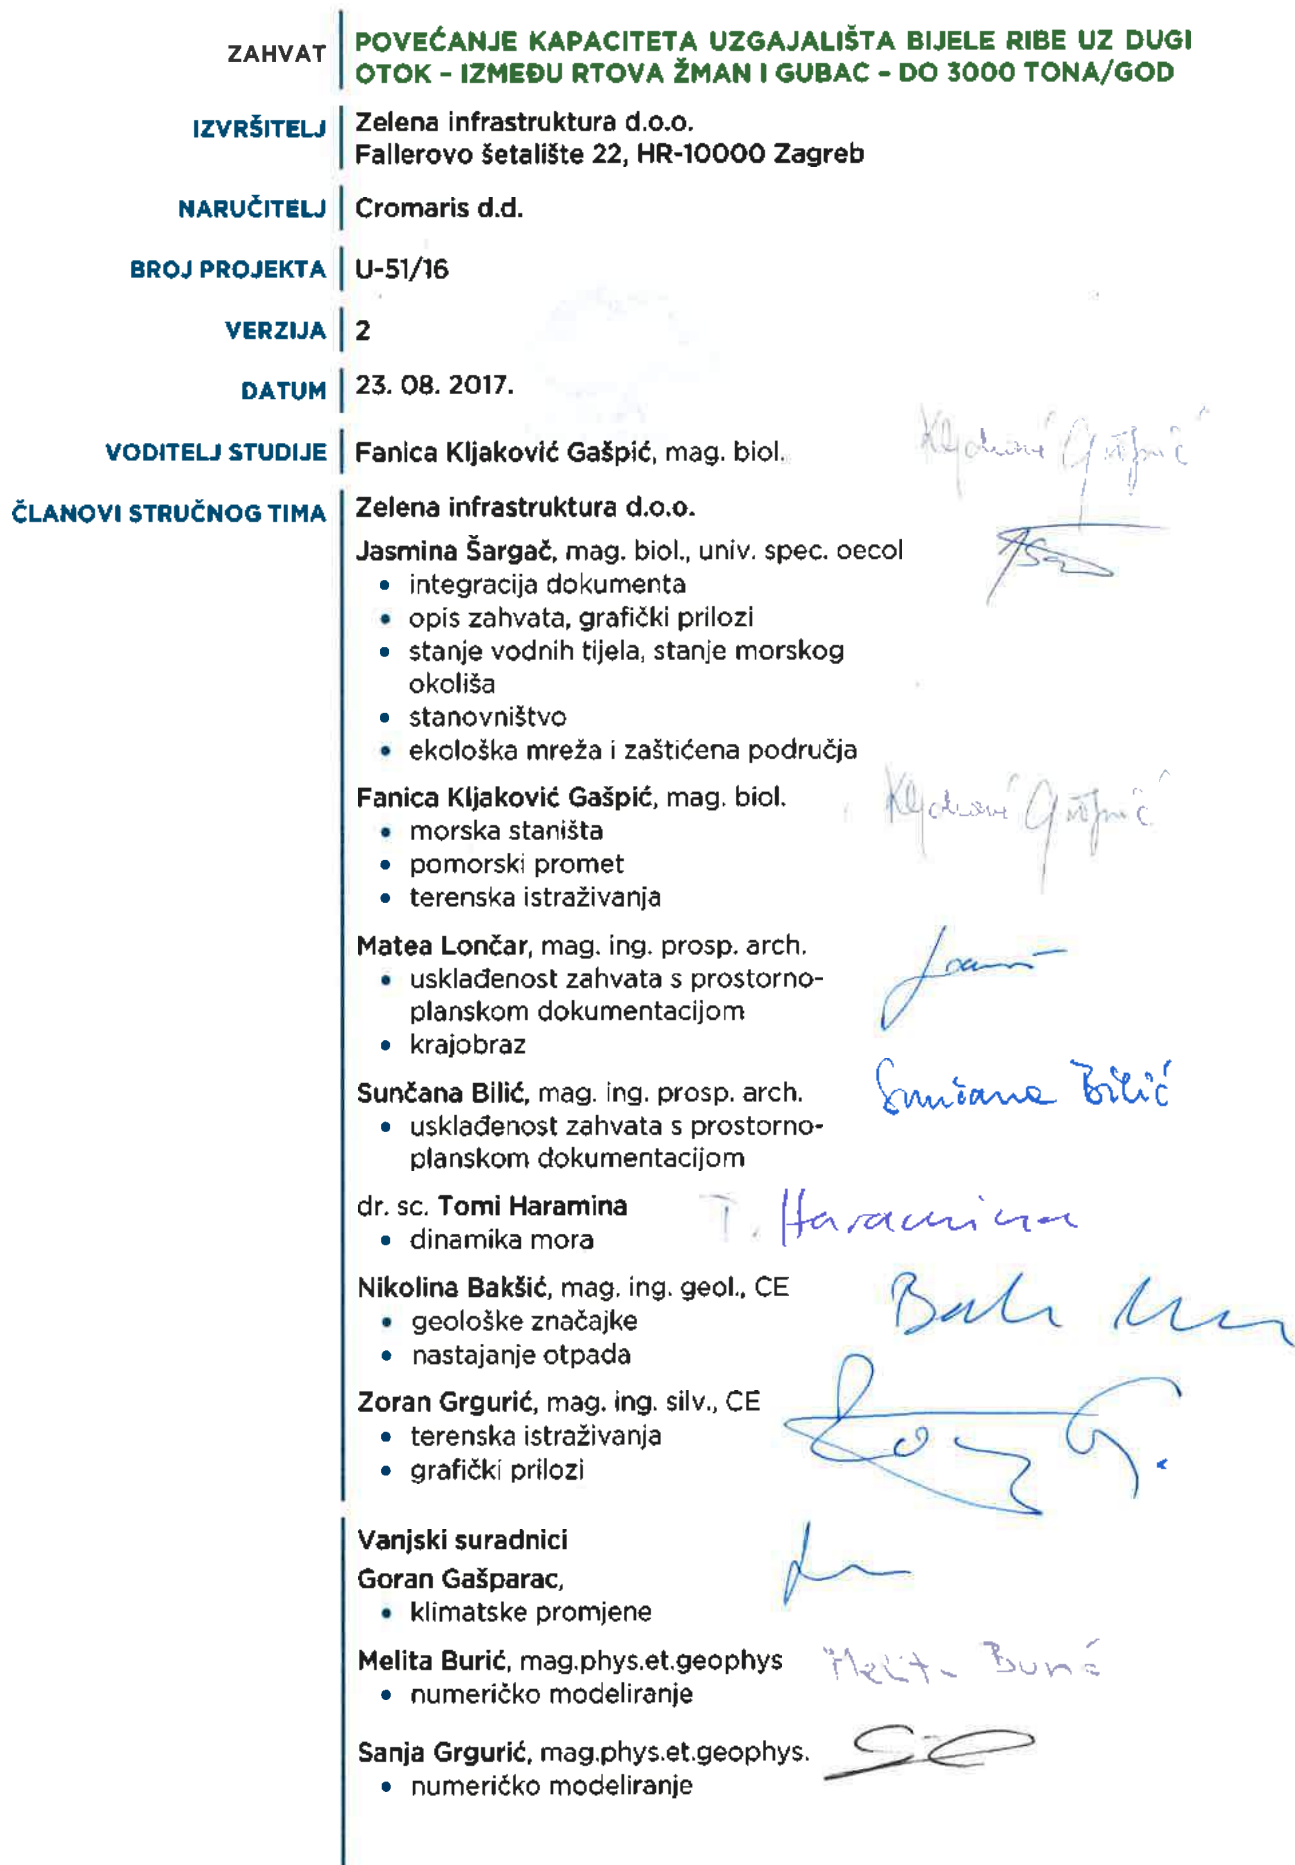 ZAHVAT
POVEĆANJE KAPACITETA UZGAJALIŠTA BIJELE RIBE UZ DUGI
OTOK – IZMEĐU RTOVA ŽMAN I GUBAC – DO 3000 TONA/GOD
IZVRŠITELJ
Zelena infrastruktura d.o.o.
Fallerovo šetalište 22, HR-10000 Zagreb
NARUČITELJ
Cromaris d.d.
BROJ PROJEKTA
U-51/16
VERZIJA
2
DATUM
23. 08. 2017.
VODITELJ STUDIJE
Fanica Kljaković Gašpić, mag. biol.
ČLANOVI STRUČNOG TIMA
Zelena infrastruktura d.o.o.
Jasmina Šargač, mag. biol., univ. spec. oecol
• integracija dokumenta
• opis zahvata, grafički prilozi
• stanje vodnih tijela, stanje morskog
okoliša
• stanovništvo
• ekološka mreža i zaštićena područja
Fanica Kljaković Gašpić, mag. biol.
• morska staništa
• pomorski promet
• terenska istraživanja
Matea Lončar, mag. ing. prosp. arch.
• usklađenost zahvata s prostorno-
planskom dokumentacijom
• krajobraz
Sunčana Bilić, mag. ing. prosp. arch.
Sunčana Bilić
• usklađenost zahvata s prostorno-
planskom dokumentacijom
dr. sc. Tomi Haramina
T. Haramina
• dinamika mora
Nikolina Bakšić, mag. ing. geol., CE
• geološke značajke
• nastajanje otpada
Zoran Grgurić, mag. ing. silv., CE
• terenska istraživanja
• grafički prilozi
Vanjski suradnici
Goran Gašparac,
• klimatske promjene
Melita Burić, mag.phys.et.geophys
Melita Burić
• numeričko modeliranje
Sanja Grgurić, mag.phys.et.geophys.
• numeričko modeliranje